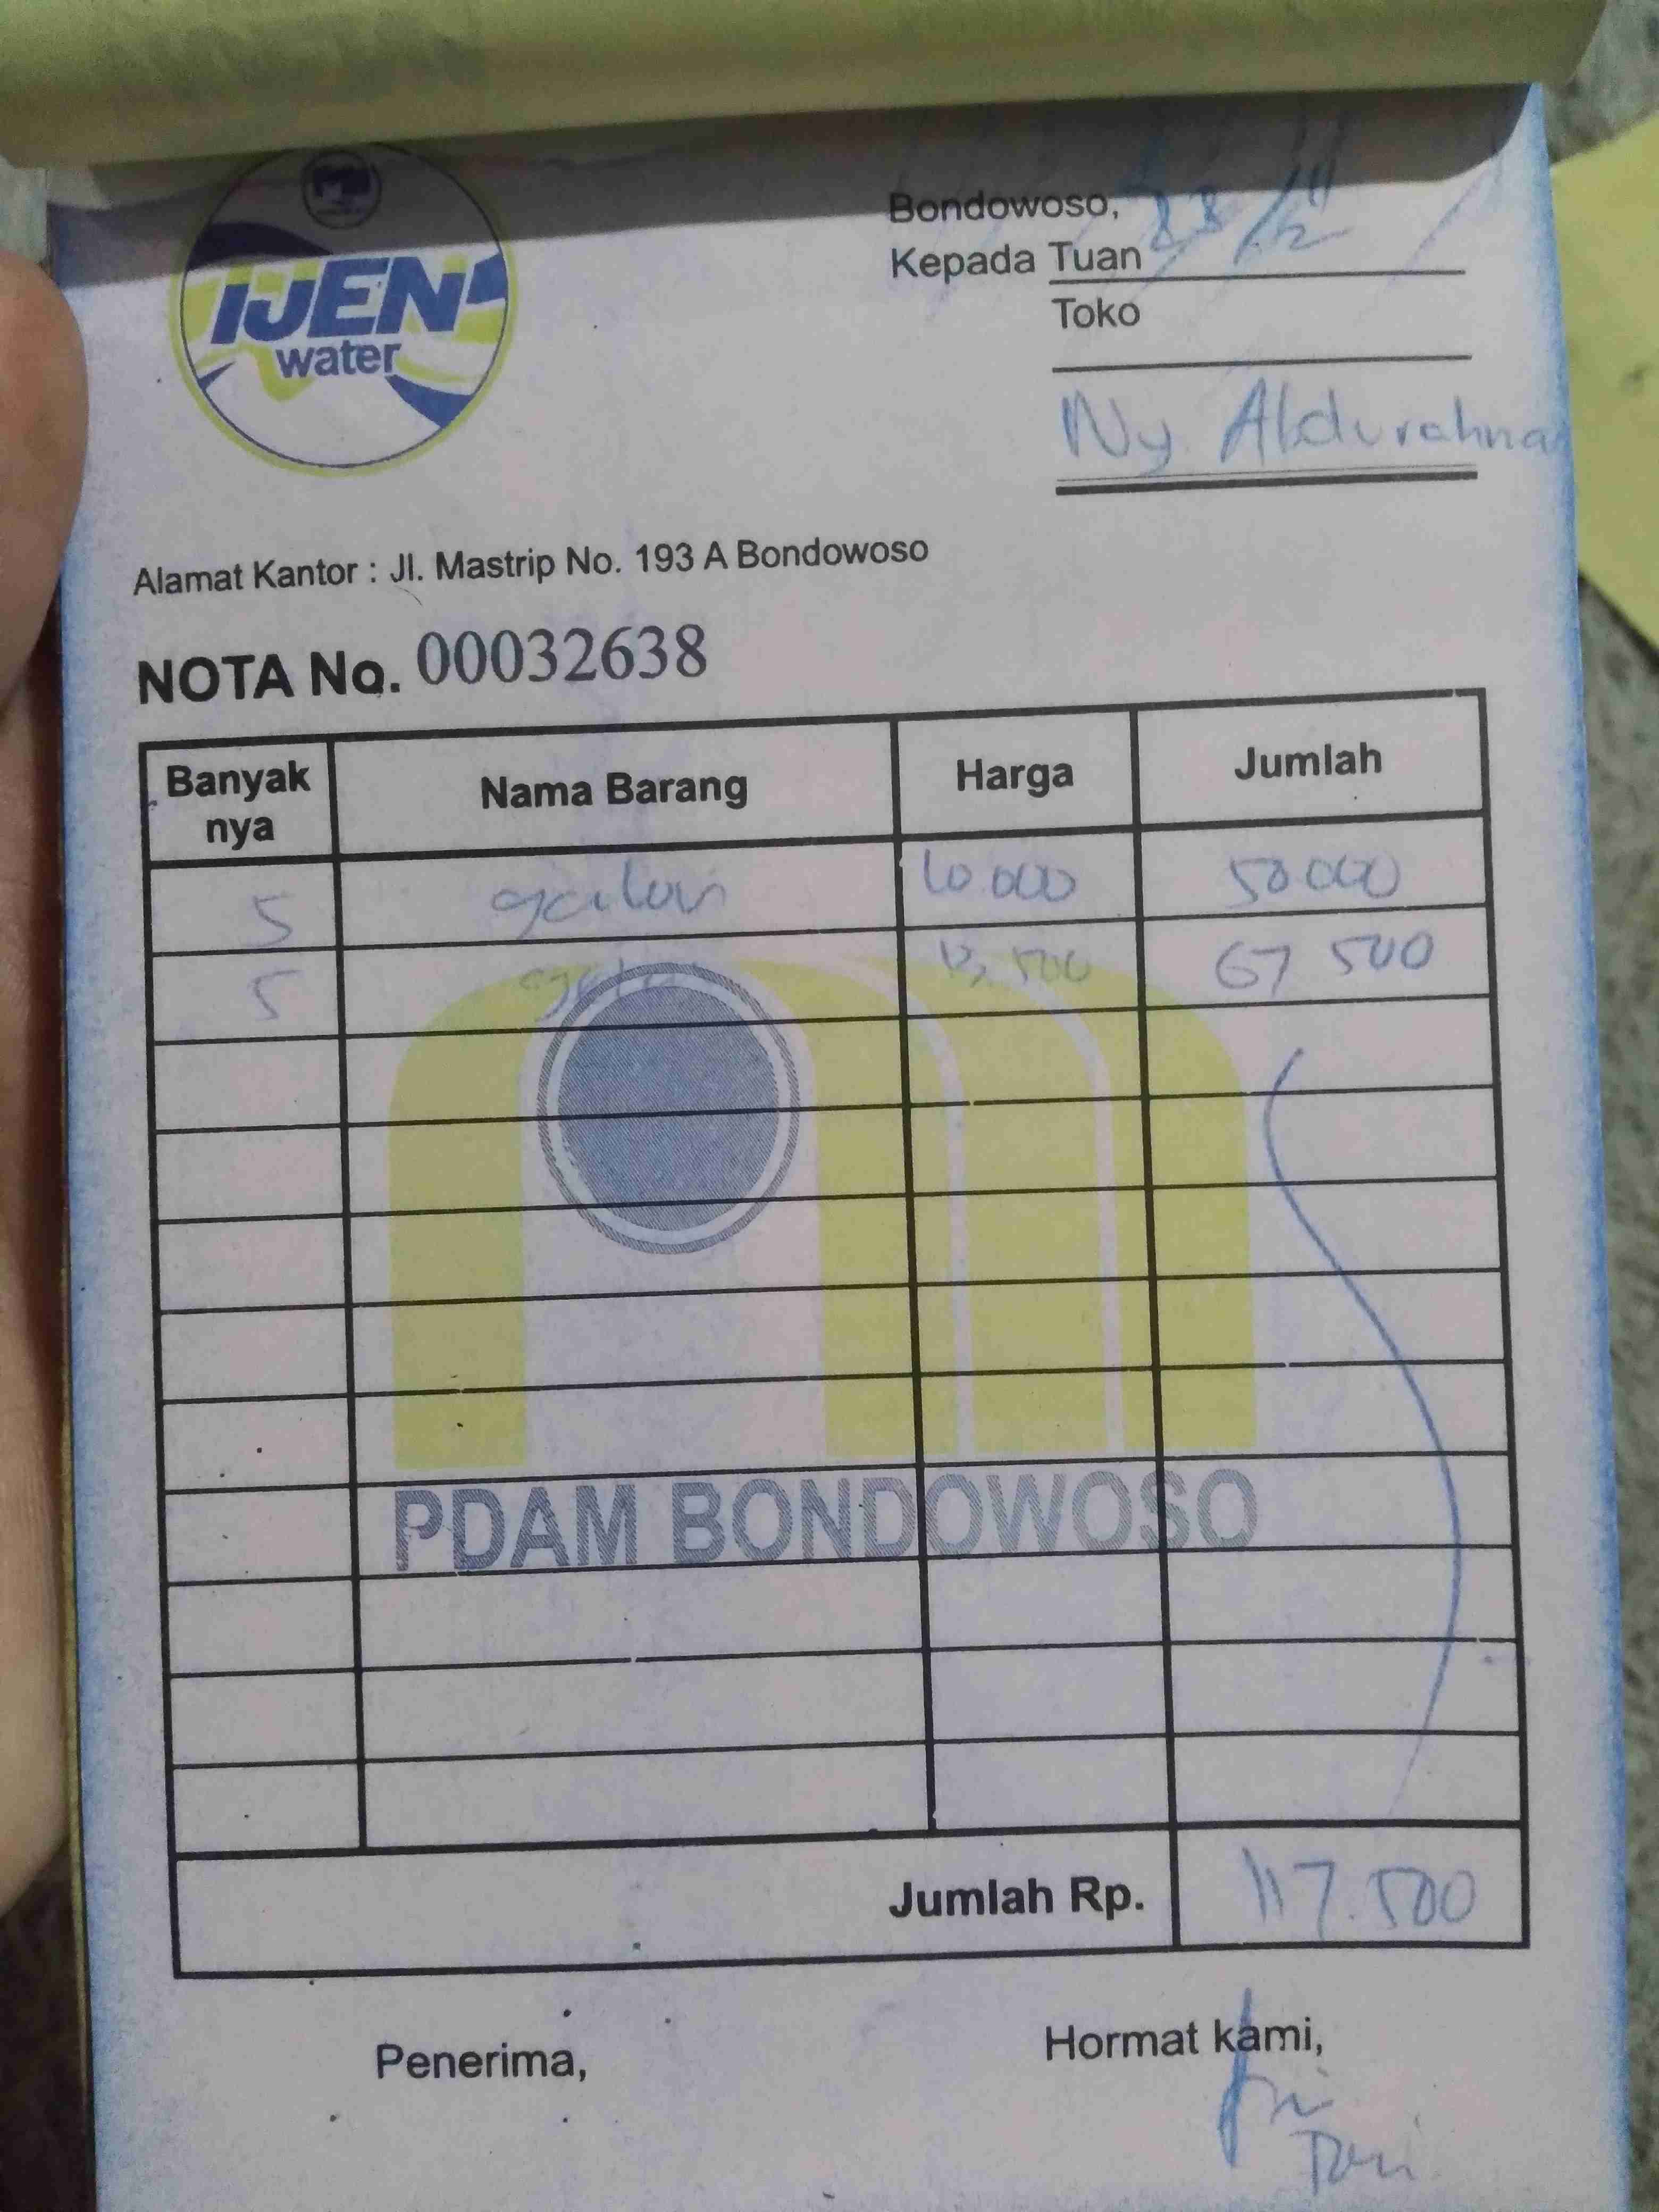 IJEN
water
Bondowoso,
Kepada Tuan
Toko
Ny. Abdurahma
Alamat Kantor : Jl. Mastrip No. 193 A Bondowoso
NOTA No. 00032638
Banyak nya Nama Barang Harga Jumlah
5 galon 10.000 50 000
5 13,500 67 500
PDAM BONDOWOSO
Jumlah Rp. 117.500
Penerima, Hormat kami,